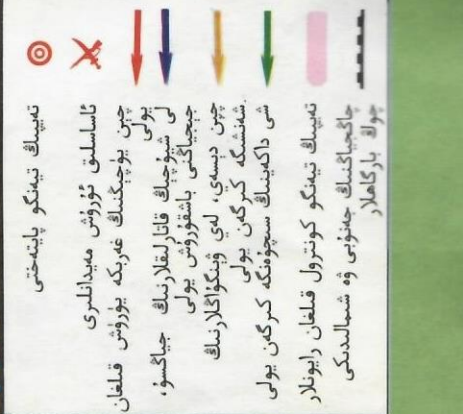 تەيپىڭ تيەنگو پايتەختى
ئاساسلىق ئۇرۇش مەيدانلىرى
چېن يۈچېڭنىڭ غەربكە يۈرۈش قىلغان
يولى
لى شيۈچېڭ قاتارلىقلارنىڭ جياڭسۇ،
جېجياڭنى باشقۇرۇش يولى
چېن دېسەي، لەي ۋېنگۇاڭلارنىڭ
شەنشىگە كىرگەن يولى
شى داكەينىڭ سىچۈەنگە كىرگەن يولى
تەيپىڭ تيەنگو كونترول قىلغان رايونلار
چاڭجياڭنىڭ جەنۇبى ۋە شىمالىدىكى
چوڭ بارگاھلار